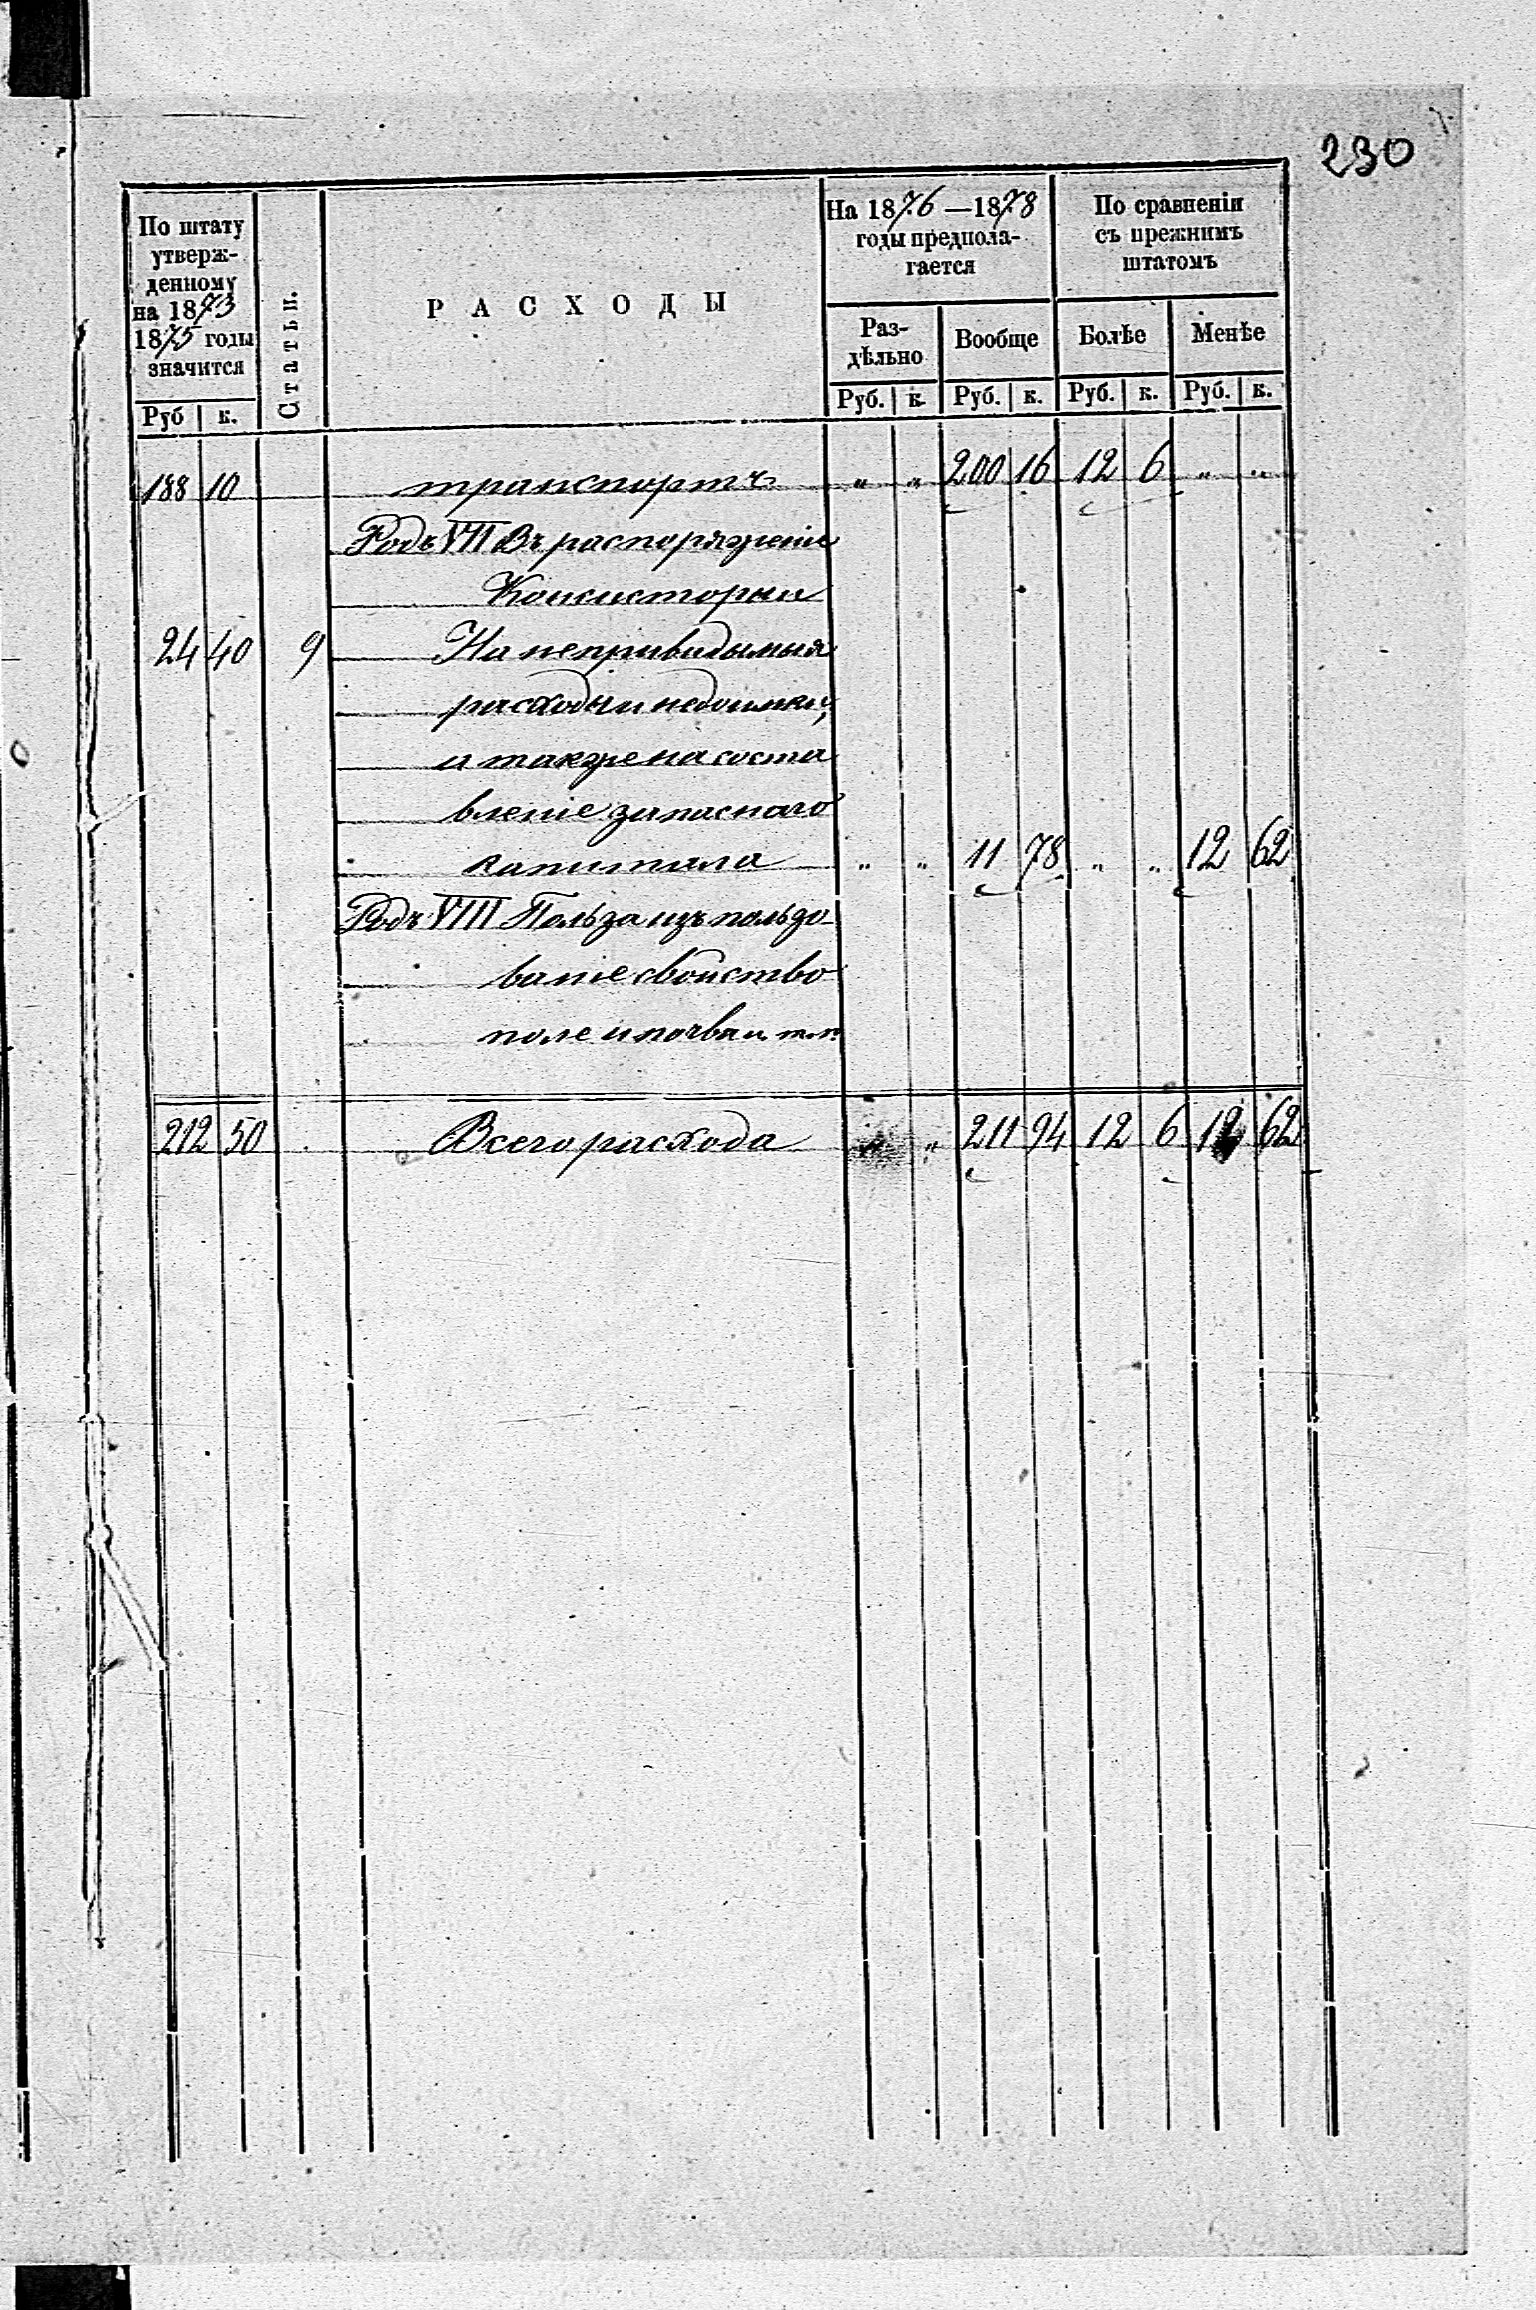 230
По штату
утверж-
денному
на 1873
1875 годы
значится
Руб к.
Статьи.
РАСХОДЫ
На 1876 —1878
годы предпола-
гается
Раз-
дѣльно
Руб. к.
Вообще
Руб. к.
По сравненіи
съ прежнимъ
штатомъ
Болѣе
Руб. к.
Менѣе
Руб. к.
188 10 транспортъ „ „ 200 16 12 6 „ „
Родъ VII Въ распоряженіе
Консисторыи
24 40 9 На непривидымыя
расходы и недоимки,
и также на соста
вленіе запаснаго
капитала „ „ 11 78 „ „ 12 62
Родъ VIII Польза изъ пользо-
ваніе свойство
поле и почва и. т. п.
212 50 Всего расхода „ „ 211 94 12 6 12 62